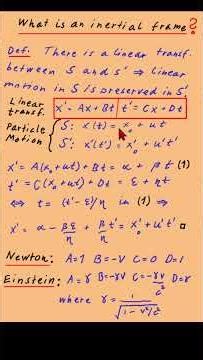 What is an inertial frame?
Def: There is a linear transf.
between S and S' ⇒ linear
motion in S is preserved in S'
Linear transf. x' = Ax + Bt t' = Cx + Dt
Particle Motion { S: x(t) = x₀ + ut
S': x'(t') = x'₀ + u't'
x' = A(x₀+ut) + Bt = α + βt (1)
t' = C(x₀+ut) + Dt = ε + ηt
⇔ t = (t'-ε)/η in (1) ⇒
x' = α - βε/η + β/η t' = x'₀ + u't' □
Newton: A=1 B=-V C=0 D=1
Einstein: A=γ B=-γV C=-γV/c² D=γ
where γ = 1/√(1-V²/c²)